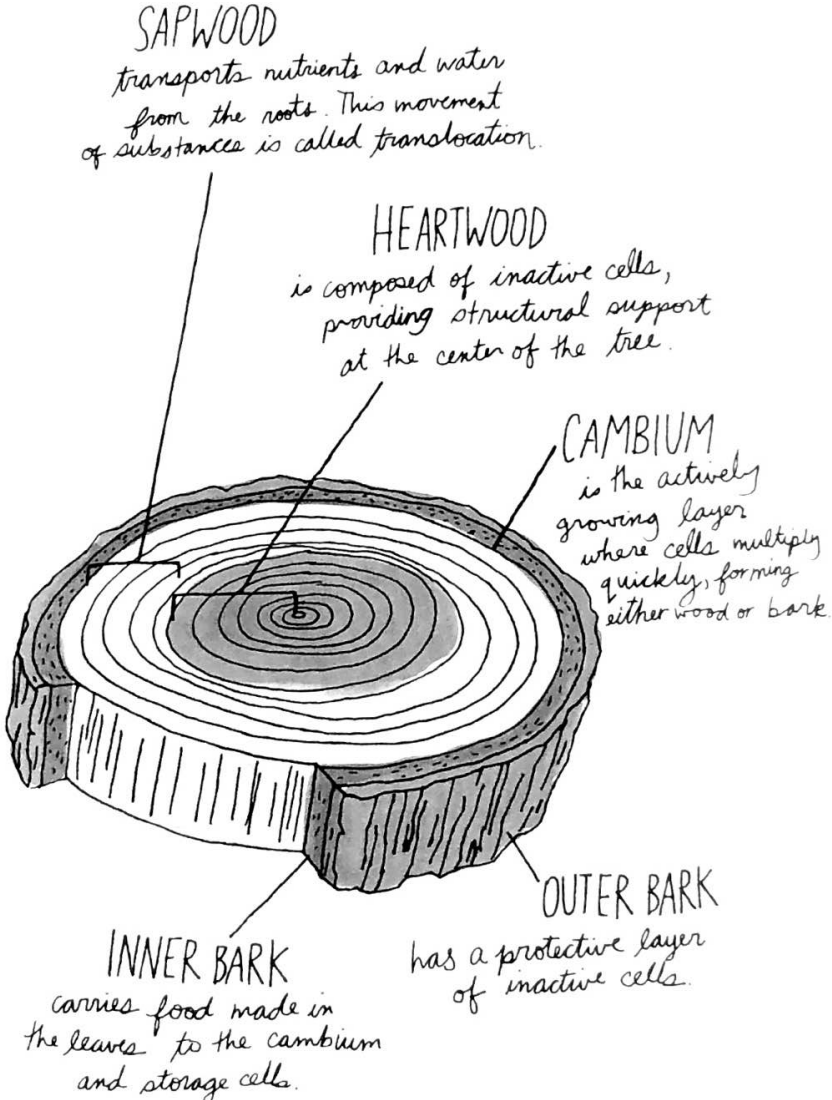 SAPWOOD
transports nutrients and water
from the roots. This movement
of substances is called translocation.
HEARTWOOD
is composed of inactive cells,
providing structural support
at the center of the tree.
CAMBIUM
is the actively
growing layer
where cells multiply
quickly, forming
either wood or bark.
OUTER BARK
has a protective layer
of inactive cells.
INNER BARK
carries food made in
the leaves to the cambium
and storage cells.